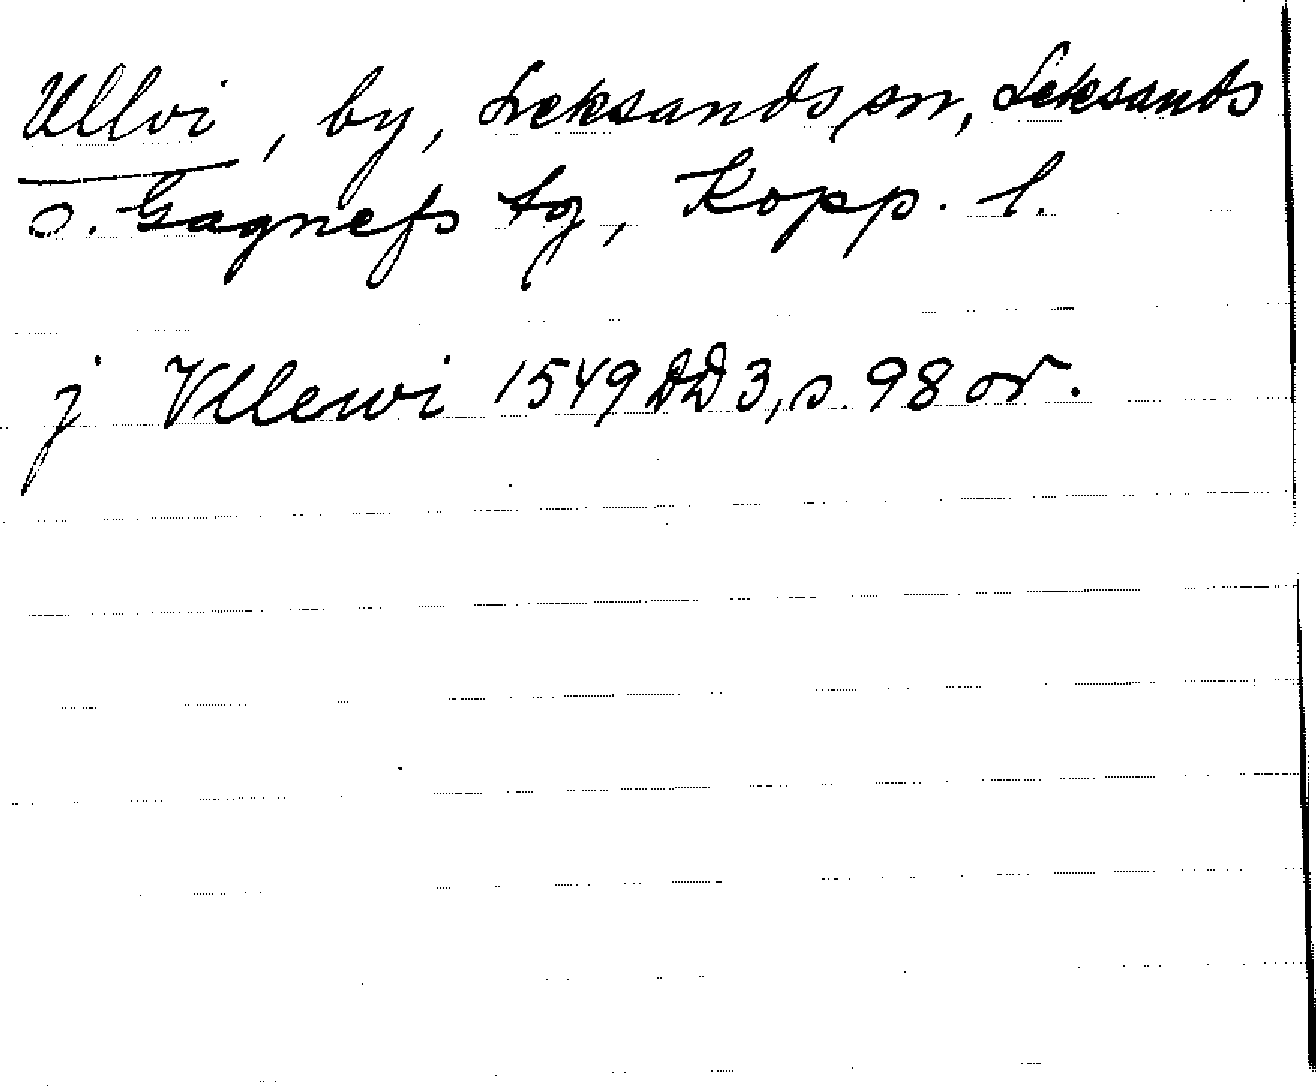 Ullvi, by, Leksands sn, Leksands
o. Gagnefs tg, Kopp. l.
j Vllewi 1549 DD 3, s. 98 or.